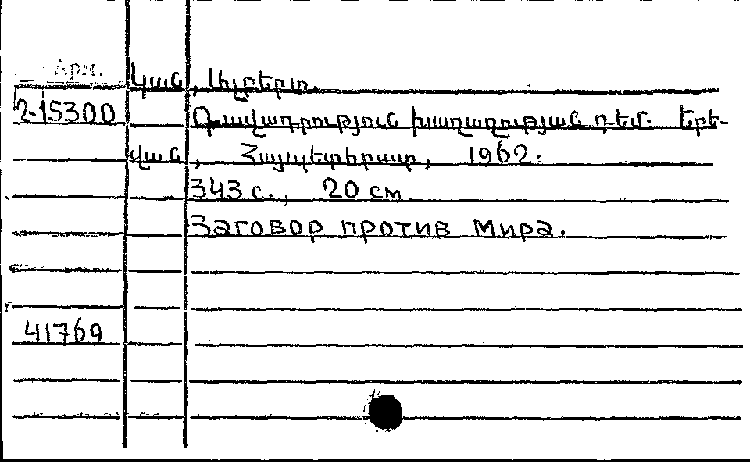 Арм.
Կան, Ալբերտ.
2-15300 Դավադրություն խաղաղության դեմ. Երե-
վան, Հայպետհրատ, 1962.
343 с., 20 см
Заговор против мира.
41769